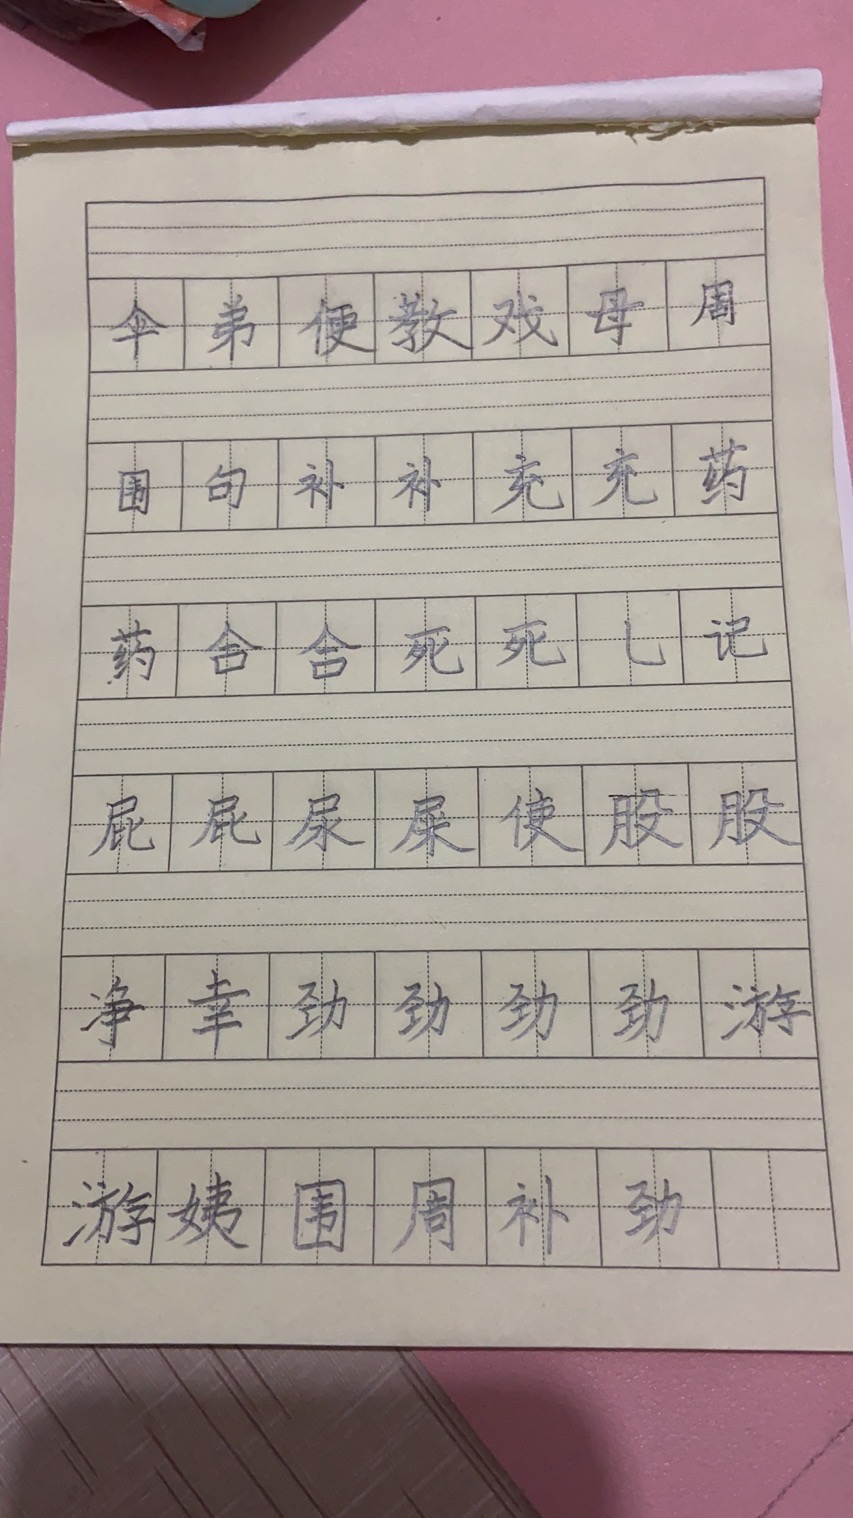 伞弟便教戏母周
围句补补充充药
药合合死死乚记
屁屁尿屎使股股
净幸劲劲劲劲游
游姨围周补劲